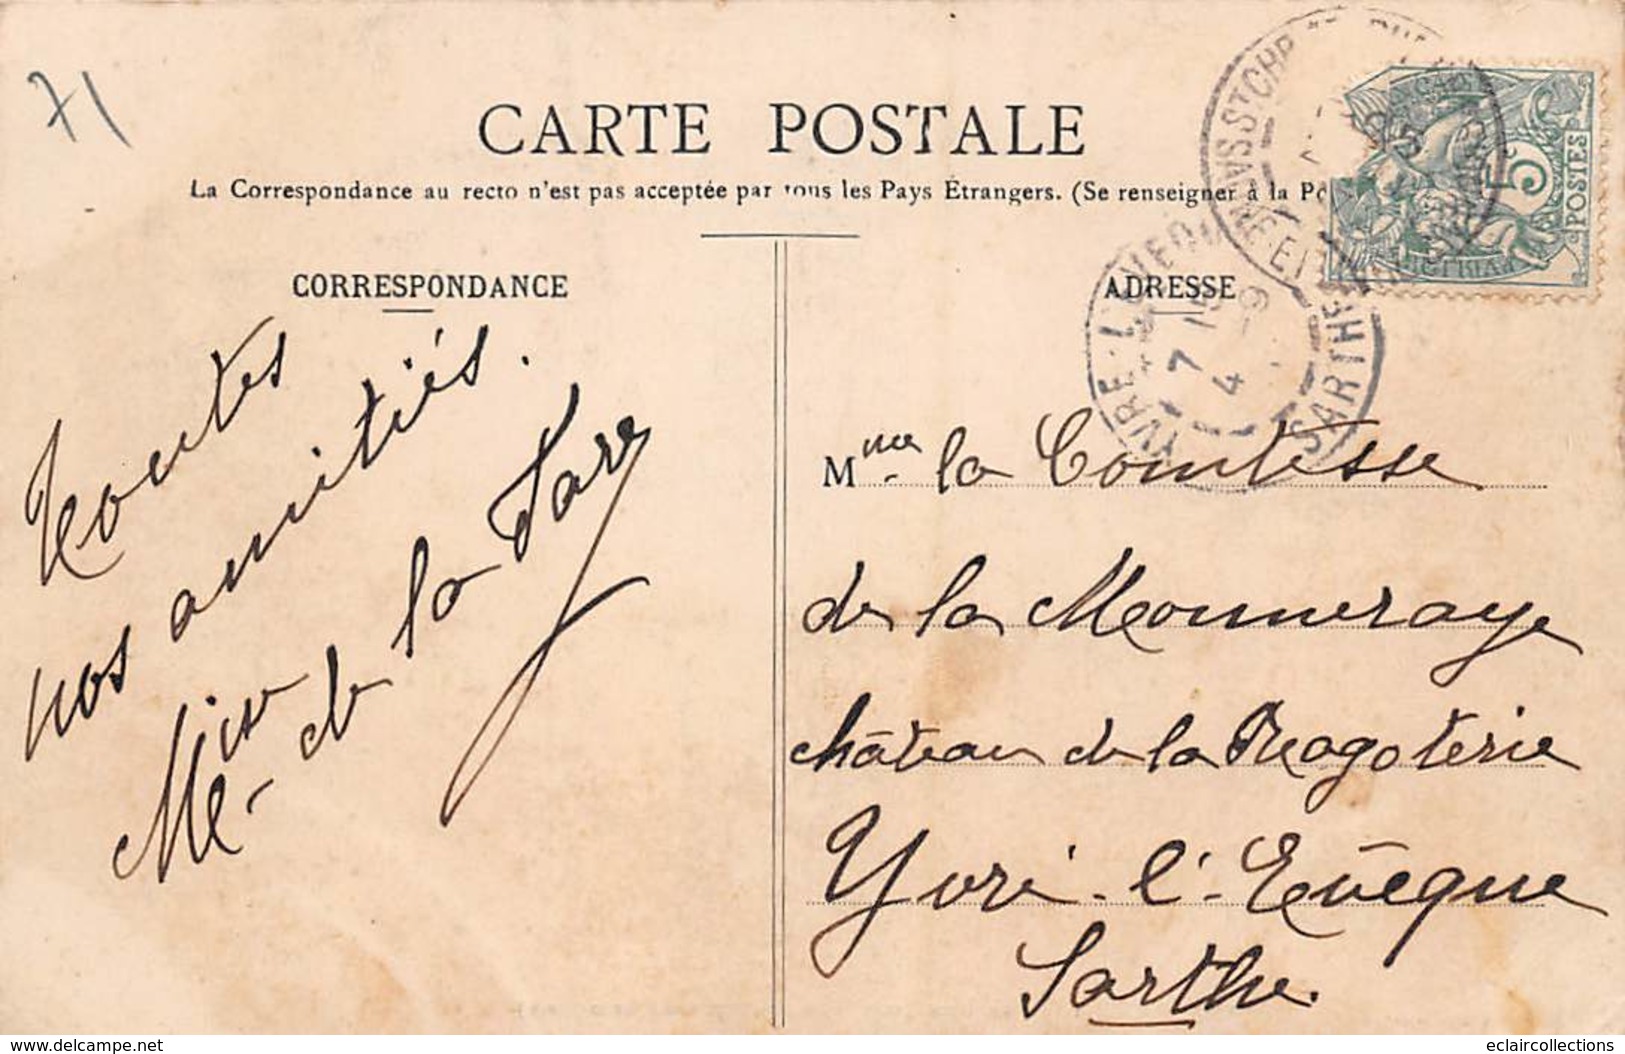 71
CARTE POSTALE
La Correspondance au recto n'est pas acceptée par tous les Pays Étrangers. (Se renseigner à la Po
CORRESPONDANCE
Toutes
nos amitiés.
Mise de la Fare
ADRESSE
Mme la Comtesse
de la Monneraye
château de la Ragoterie
Yvré-l'Evêque
Sarthe.
5
POSTES
YVRE-L'EVEQU
7 15
4 -9
SARTHE
Delcampe.net
eclaircollections